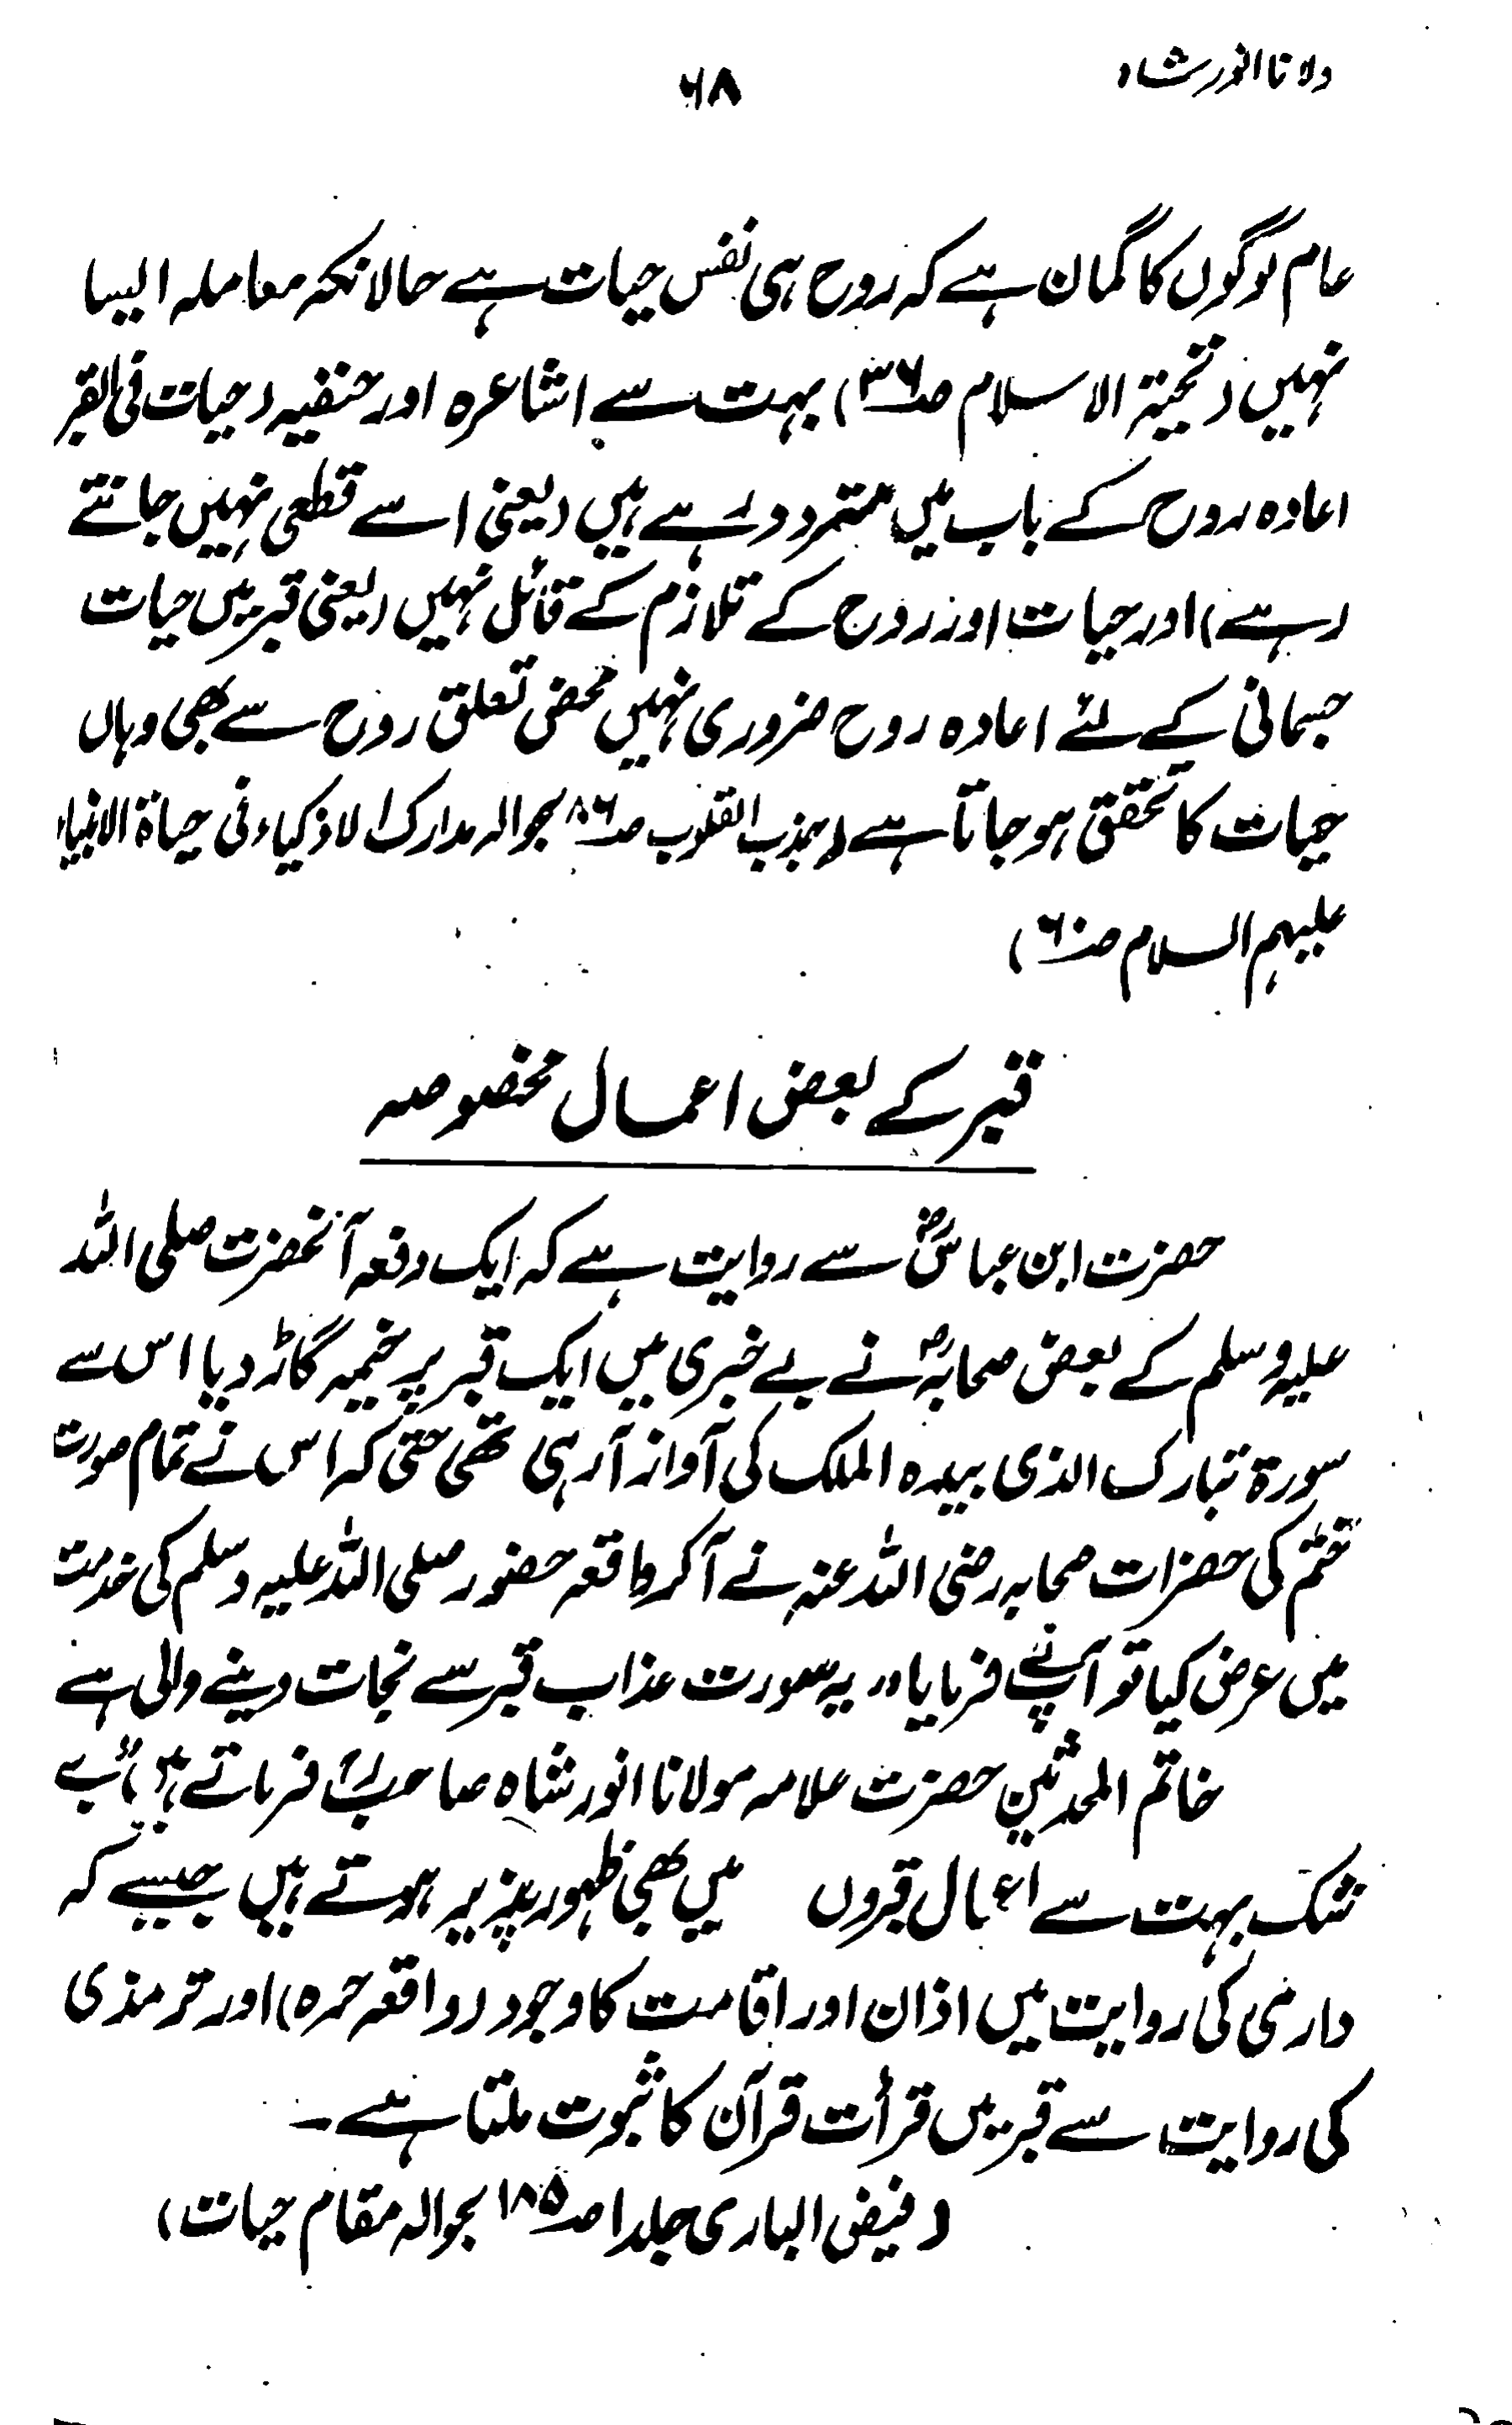 دلانا انور شاہ
۶۸
عام لوگوں کا گمان ہے کہ روح ہی نفس حیات ہے حالانکہ معاملہ ایسا
نہیں (تحیتہ الاسلام صـ۳۶) بہت سے اشاعرہ اور حنفیہ (حیات فی القبر
اعادہ روح کے باب میں متردد رہے ہیں (یعنی اسے قطعی نہیں جانتے
رہے) اور حیات اور روح کے تلازم کے قائل نہیں (یعنی قبر میں حیات
جسمانی کے لئے اعادہ روح ضروری نہیں محض تعلق روح سے بھی وہاں
حیات کا تحقق ہو جاتا ہے (جذب القلوب صـ۱۸۶ بحوالہ مدارک الاذکیاء فی حیاۃ الانبیاء
علیہم السلام صـ۶۰)
قبر کے بعض اعمال مخصوصہ
حضرت ابن عباسؓ سے روایت ہے کہ ایک دفعہ آنحضرت صلی اللہ
علیہ وسلم کے بعض صحابہؓ نے بے خبری میں ایک قبر پر خیمہ گاڑ دیا اس سے
سورۃ تبارک الذی بیدہ الملک کی آواز آرہی تھی حتی کہ اس نے تمام صورت
ختم کی حضرات صحابہ رضی اللہ عنہ نے آکر واقعہ حضور صلی اللہ علیہ وسلم کی خدمت
میں عرض کیا تو آپؐ نے فرمایا اور یہ صورت عذاب قبر سے نجات دینے والی ہے
خاتم المحدثین حضرت علامہ مولانا انور شاہ صاحبؒ فرماتے ہیں بے
شک بہت سے اعمال قبروں میں بھی ظہور پذیر ہوتے ہیں جیسے کہ
دارمی کی روایت میں اذان اور اقامت کا وجود (واقعہ حرہ) اور ترمذی
کی روایت سے قبر میں قرأت قرآن کا ثبوت ملتا ہے۔
(فیض الباری جلد ۱ صـ۱۸۵ بحوالہ مقام حیات)